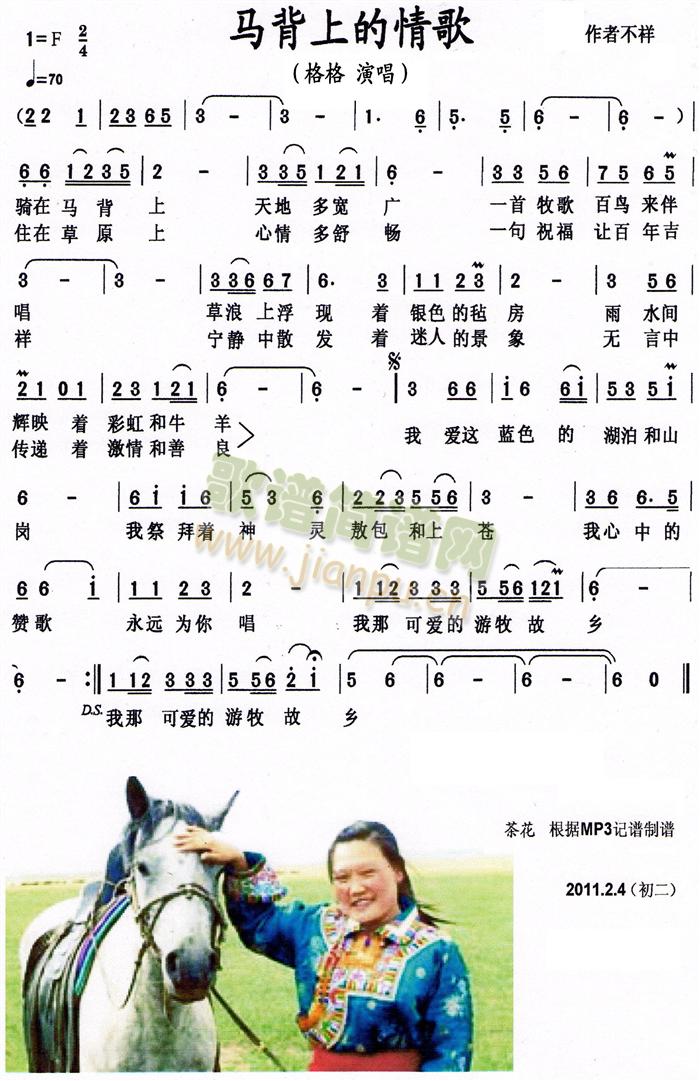 马背上的情歌
1=F 2/4
作者不祥
♩=70
（格格 演唱）
（2 2 2 1 | 2 3 6 5 | 3 - | 3 - | 1. 6 | 5. 5 | 6 - | 6 - ）|
6 6 1 2 3 5 | 2 - | 3 3 5 1 2 1 | 6 - | 3 3 5 6 | 7 5 6 5 |
骑在 马 背 上 天地 多宽 广 一首 牧歌 百鸟 来伴
住在 草 原 上 心情 多舒 畅 一句 祝福 让百 年吉
3 - | 3 - | 3 3 6 6 7 | 6. 3 | 1 1 2 3 | 2 - | 3 5 6 |
唱 草浪 上浮 现 着 银色 的毡 房 雨 水间
祥 宁静 中散 发 着 迷人 的景 象 无 言中
2 1 0 1 | 2 3 1 2 1 | 6 - | 6 - | 3 6 6 | i 6 6 i | 5 3 5 i |
辉映 着 彩虹 和牛 羊
传递 着 激情 和善 良
我 爱这 蓝色 的 湖泊 和山
6 - | 6 i i 6 | 5 3 6 | 2 2 3 5 5 6 | 3 - | 3 6 6. 5 |
岗 我祭 拜着 神 灵 敖包 和上 苍 我心 中的
6 6 i | 1 1 2 3 | 2 - | 1 1 2 3 3 3 | 5 5 6 1 2 1 | 6 - |
赞歌 永远 为你 唱 我那 可爱的 游牧 故 乡
6 - :‖ 1 1 2 3 3 3 | 5 5 6 2 i | 5 6 | 6 - | 6 - | 6 0 ‖
D.S. 我那 可爱的 游牧 故 乡
歌谱简谱网
www.jianpu.cn
茶花 根据MP3记谱制谱
2011.2.4（初二）